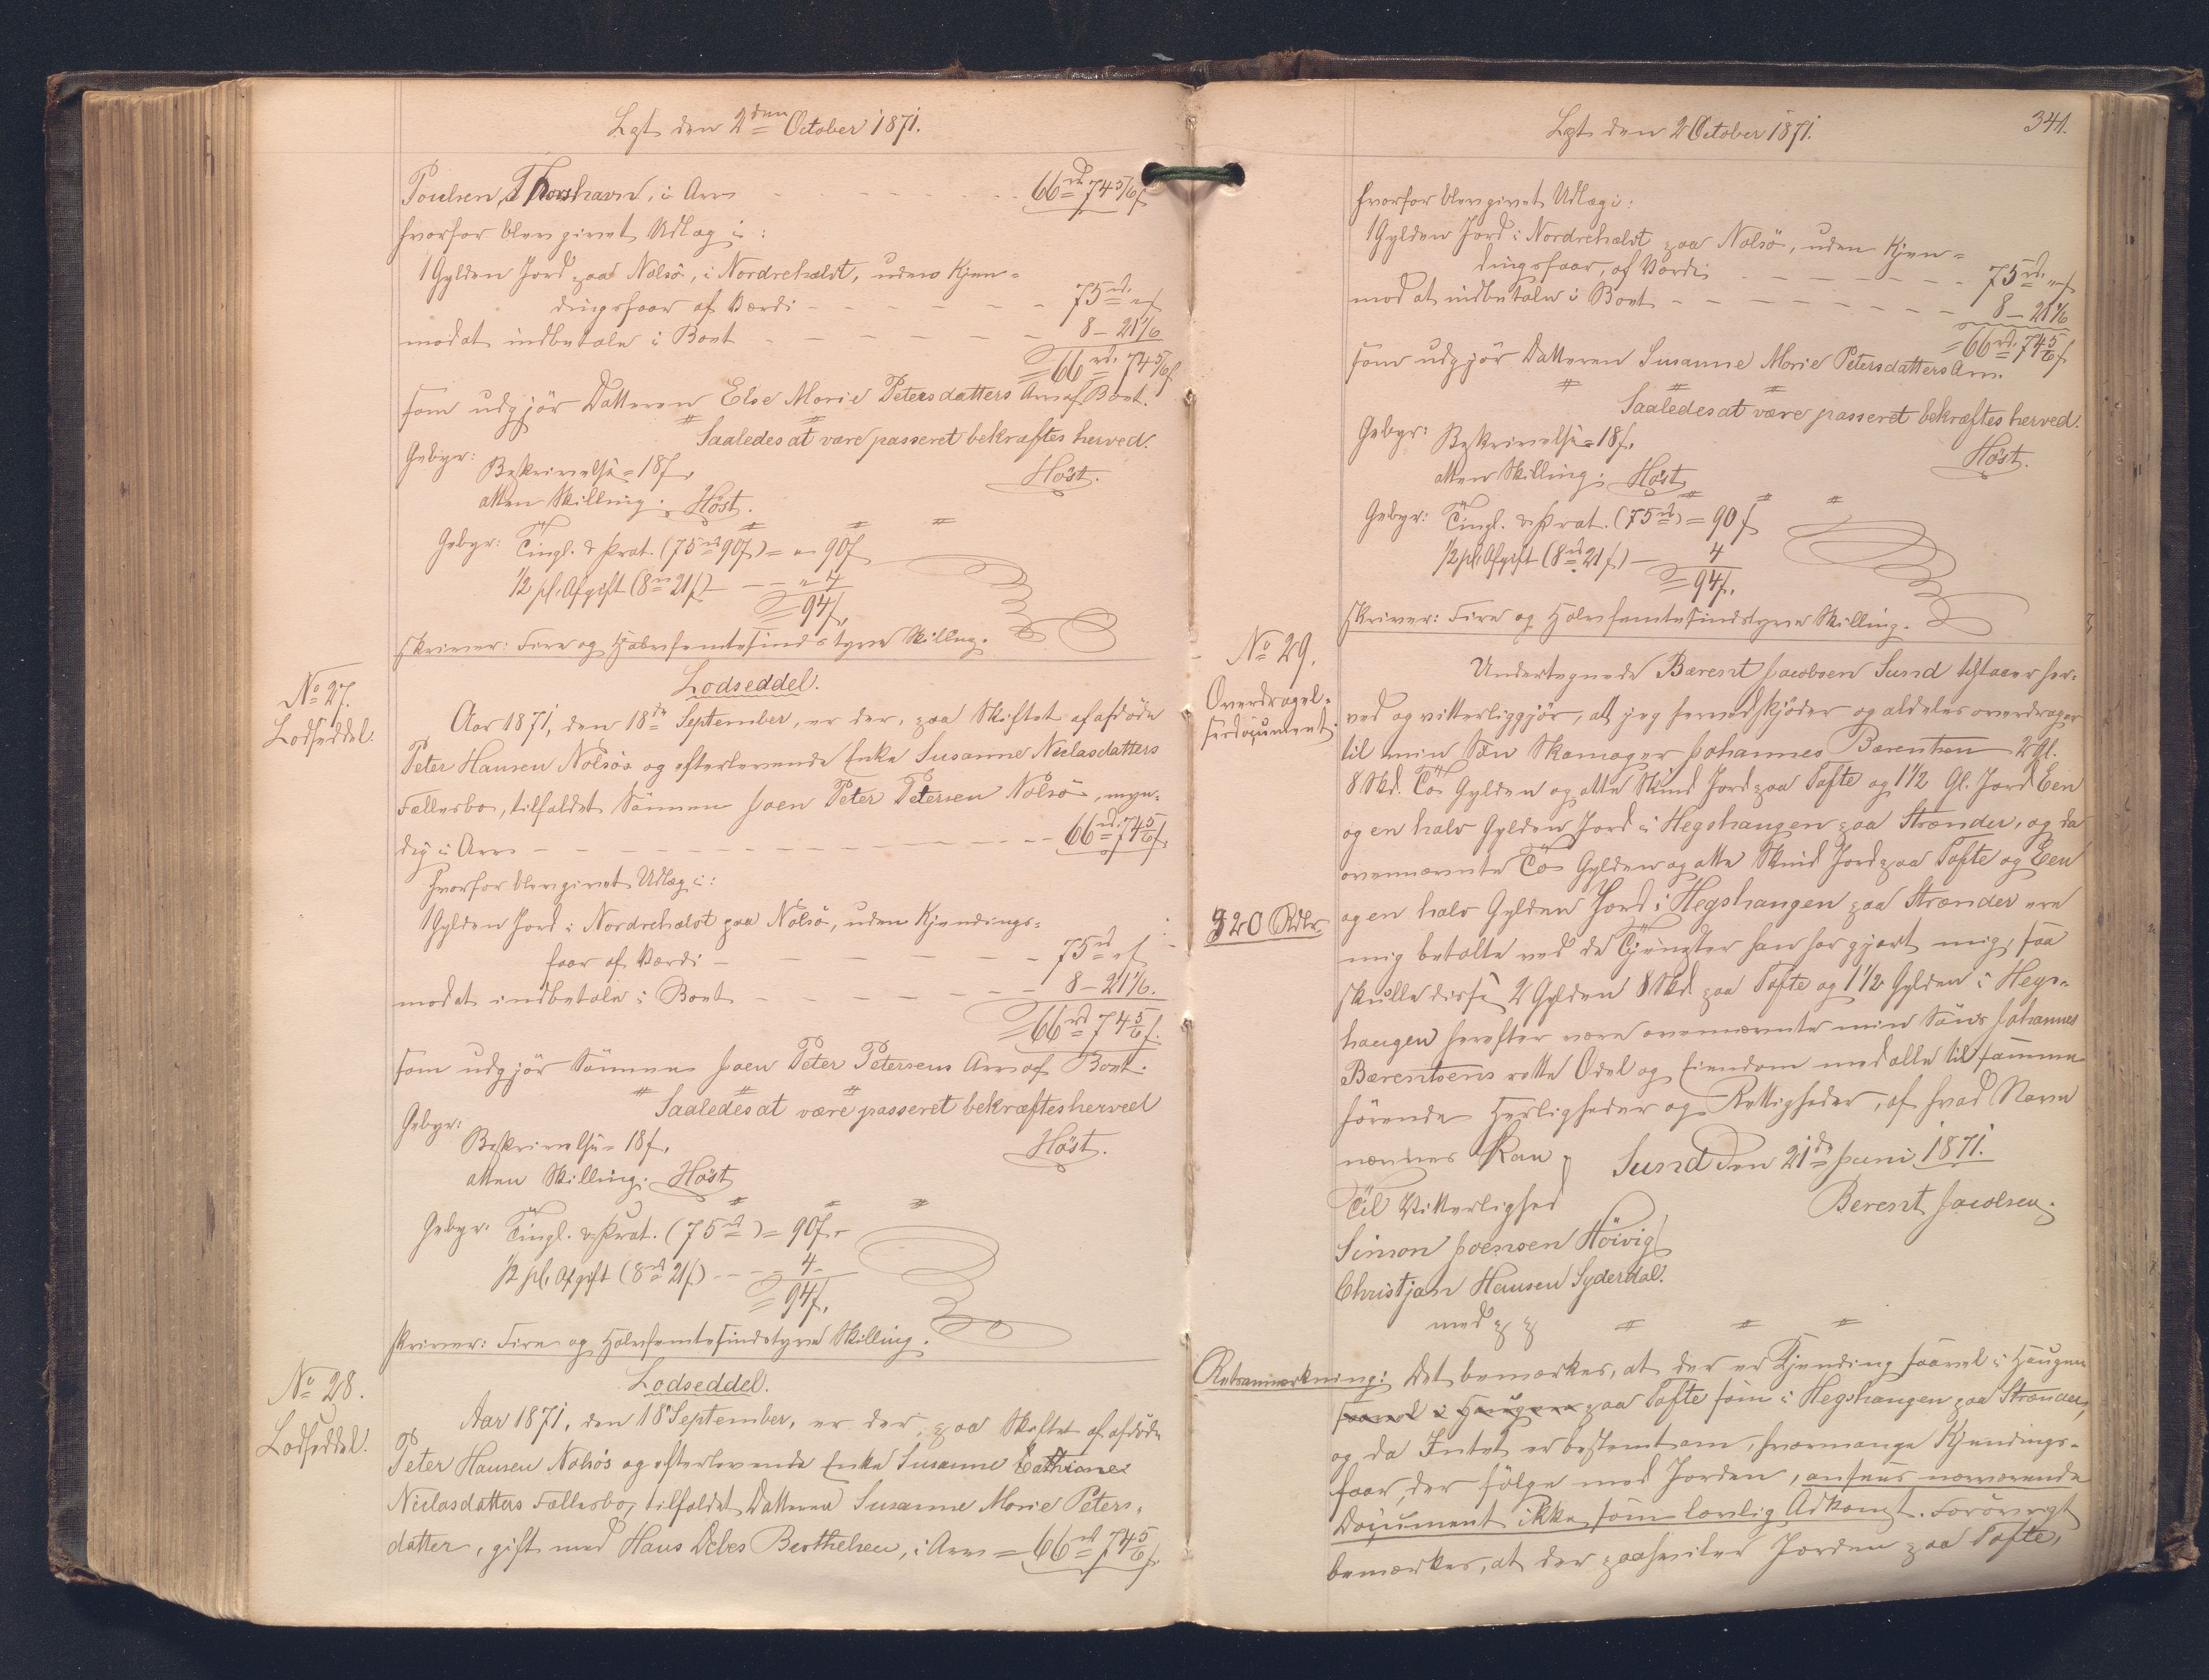 Lgt den 2den October 1871.
Poulsen, Thorshavn, i Arv - - - 66rd 74 5/6 ß
hvorfor blev givet Udlæg i:
1 Gylden Jord paa Nolsö, i Nordrehalvt, uden Kjen=
dingsfaar af Værdi - - - 75rd " ß
mod at indbetale i Boet - - - 8 - 21 1/6
= 66rd 74 5/6 ß
som udgjör Datteren Else Marie Petersdatters Arv af Boet.
Saaledes at være passeret bekræftes herved.
Höst.
Gebyr:
Beskrivelse = 18 ß.
atten Skilling. Höst.
Gebyr: Tingl. & Prot. (75rd 90ß) = " - 90ß
1/2 pCt. Afgift (8rd 21ß) - - " 4
= 94ß.
skriver: Fire og Halvfemtesindstyve Skilling.
No 27.
Lodseddel.
Lodseddel.
Aar 1871, den 18de September, er der, paa Skiftet af afdöde
Peter Hansen Nolsös og efterlevende Enke Susanne Niclasdatters
Fællesbo, tilfaldet Sönnen Joen Peter Petersen Nolsö, myn=
dig i Arv - - - 66rd 74 5/6 ß.
hvorfor blev givet Udlæg i:
1 Gylden Jord i Nordrehalvt paa Nolsö, uden Kjendings=
faar af Værdi - - - 75rd " ß
mod at indbetale i Boet - - - 8 - 21 1/6.
= 66rd 74 5/6 ß.
som udgjör Sönnen Joen Peter Petersens Arv af Boet.
Saaledes at være passeret bekræftes herved
Höst.
Gebyr:
Beskrivelse = 18 ß.
atten Skilling. Höst
Gebyr: Tingl. & Prot. (75rd) = 90ß -
1/2 pCt. Afgift (8rd 21ß) - - - 4 -
= 94ß.
skriver: Fire og Halvfemtesindstyve Skilling.
No 28.
Lodseddel.
Lodseddel.
Aar 1871, den 18' September, er der, paa Skiftet af afdöde
Peter Hansen Nolsös og efterlevende Enke Susanne Cathrine
Niclasdatters Fællesbo, tilfaldet Datteren Susanne Marie Peters=
datter, gift med Hans Debes Berthelsen, i Arv = 66rd 74 5/6 ß.
Lgt den 2 October 1871.
341.
hvorfor blev givet Udlæg i:
1 Gylden Jord i Nordrehalvt paa Nolsö, uden Kjen=
dingsfaar, af Værdi - - - 75rd. " ß
mod at indbetale i Boet - - - 8 - 21 1/6
= 66rd. 74 5/6 ß
som udgjör Datteren Susanne Marie Petersdatters Arv.
Saaledes at være passeret bekræftes herved.
Höst.
Gebyr: Beskrivelse = 18ß.
atten Skilling. Höst
Gebyr: Tingl. & Prot. (75rd) = 90ß
1/2 pCt. Afgift (8rd 21ß) - 4
= 94ß.
skriver: Fire og Halvfemtesindstyve Skilling.
No 29.
Overdragel=
sesdocument
320 Rdlr.
Undertegnede Bærent Jacobsen Sund tilstaaer her=
ved og vitterliggjör, at jeg hermed skjöder og aldeles overdrager
til min Sön Skomager Johannes Bærentsen 2 Gl.
8 Skd. To Gylden og otte Skind Jord paa Tofte og 1 1/2 Gl. Jord Een
og en halv Gylden Jord i Hegshaugen paa Strænder, og da
ovennævnte To Gylden og otte Skind Jord paa Tofte og Een
og en halv Gylden Jord i Hegshaugen paa Strænder ere
mig betalte ved de Tjenester han har gjort mig, saa
skulle disse 2 Gylden 8 Skd. paa Tofte og 1 1/2 Gylden i Hegs=
haugen herefter være ovennævnte min Söns Johannes
Bærentsens rette Odel og Eiendom med alle til samme
hörende Herligheder og Rettigheder, af hvad Navn
nævnes kan,
Sund den 21de Juni 1871.
Til Vitterlighed
Berent Jacobsen.
Simon Joensen Höivig
Christjan Hansen Syderdal.
med p. p.
Retsanmærkning: Det bemærkes, at der er Kjending saavel i Haugen
saavel i Haugen paa Tofte som i Hegshaugen paa Strænder,
og da Intet er bestemt om, hvormange Kjendings=
faar, der fölge med Jorden, ansees nærværende
Document ikke som lovlig Adkomst. Forövrigt
bemærkes, at der paahviler Jorden paa Tofte,